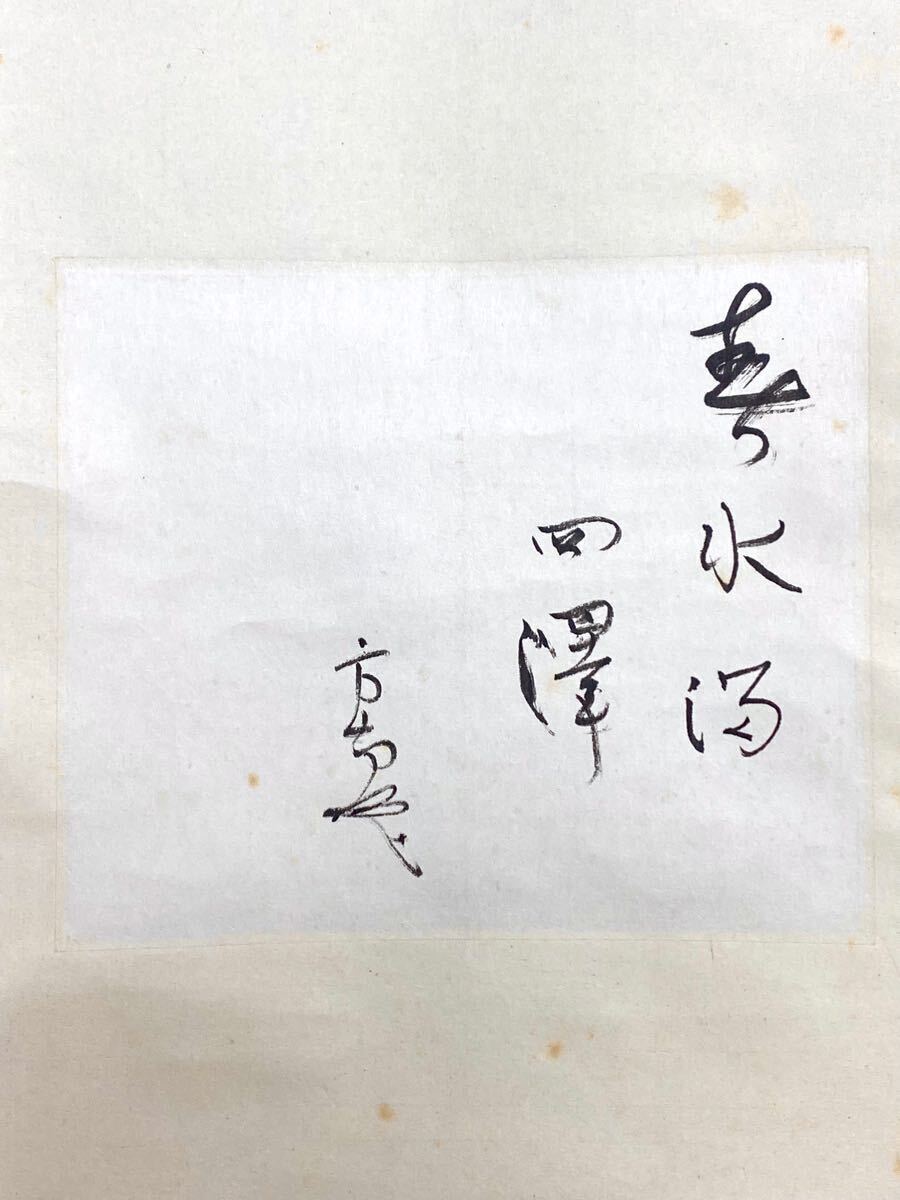 春水満
四澤
方